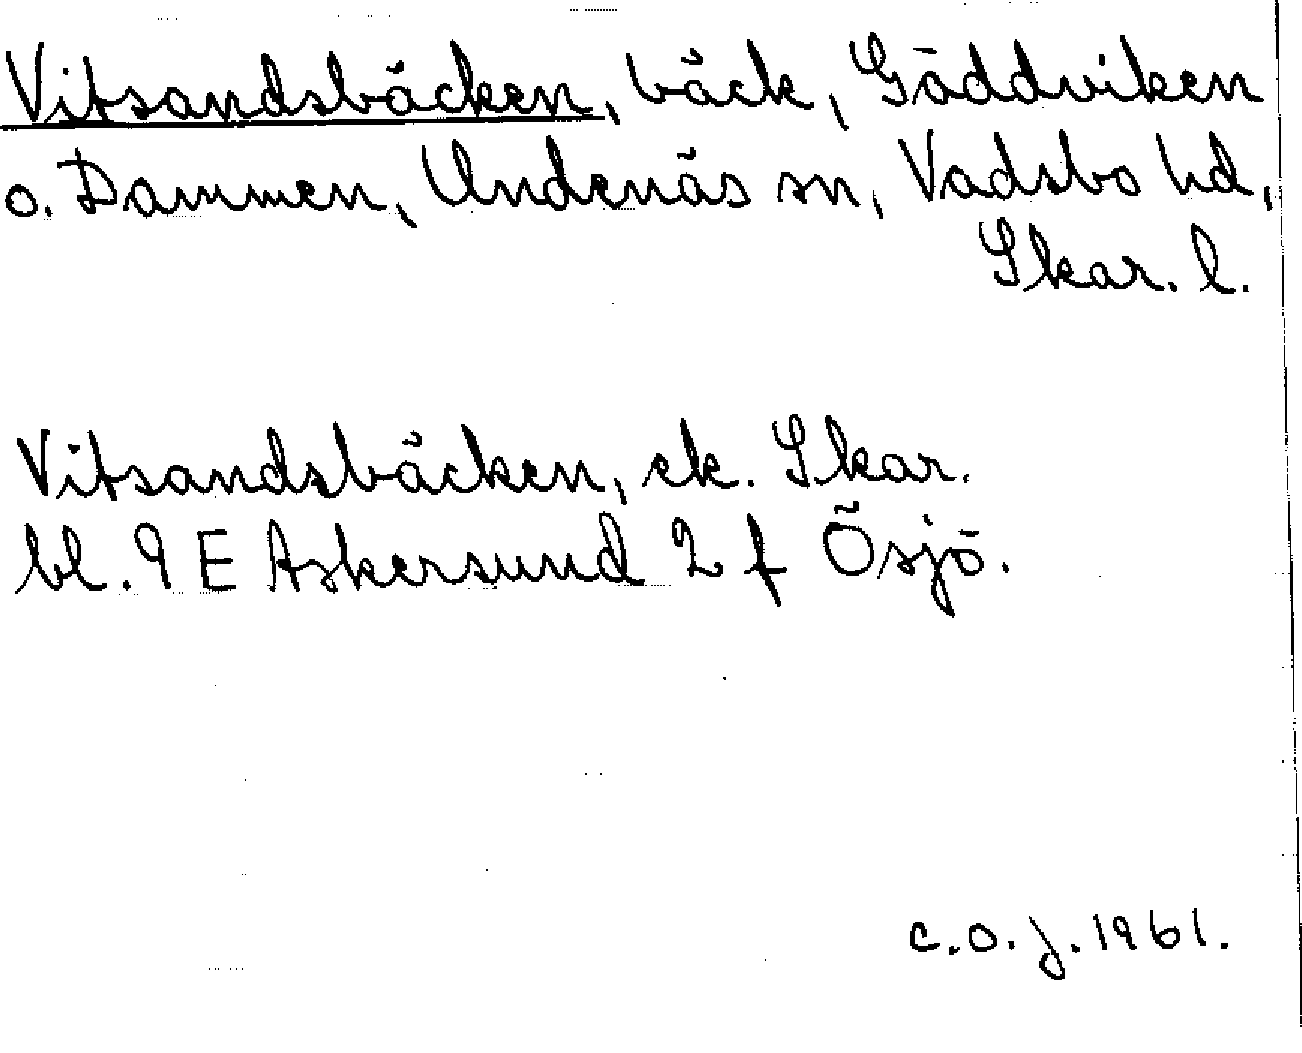 Vitsandsbäcken, bäck, Gäddviken
o. Dammen, Undenäs sn, Vadsbo hd,
Skar. l.
Vitsandsbäcken, ek. Skar.
bl. 9 E Askersund 2 f Ösjö.
c.o.j. 1961.